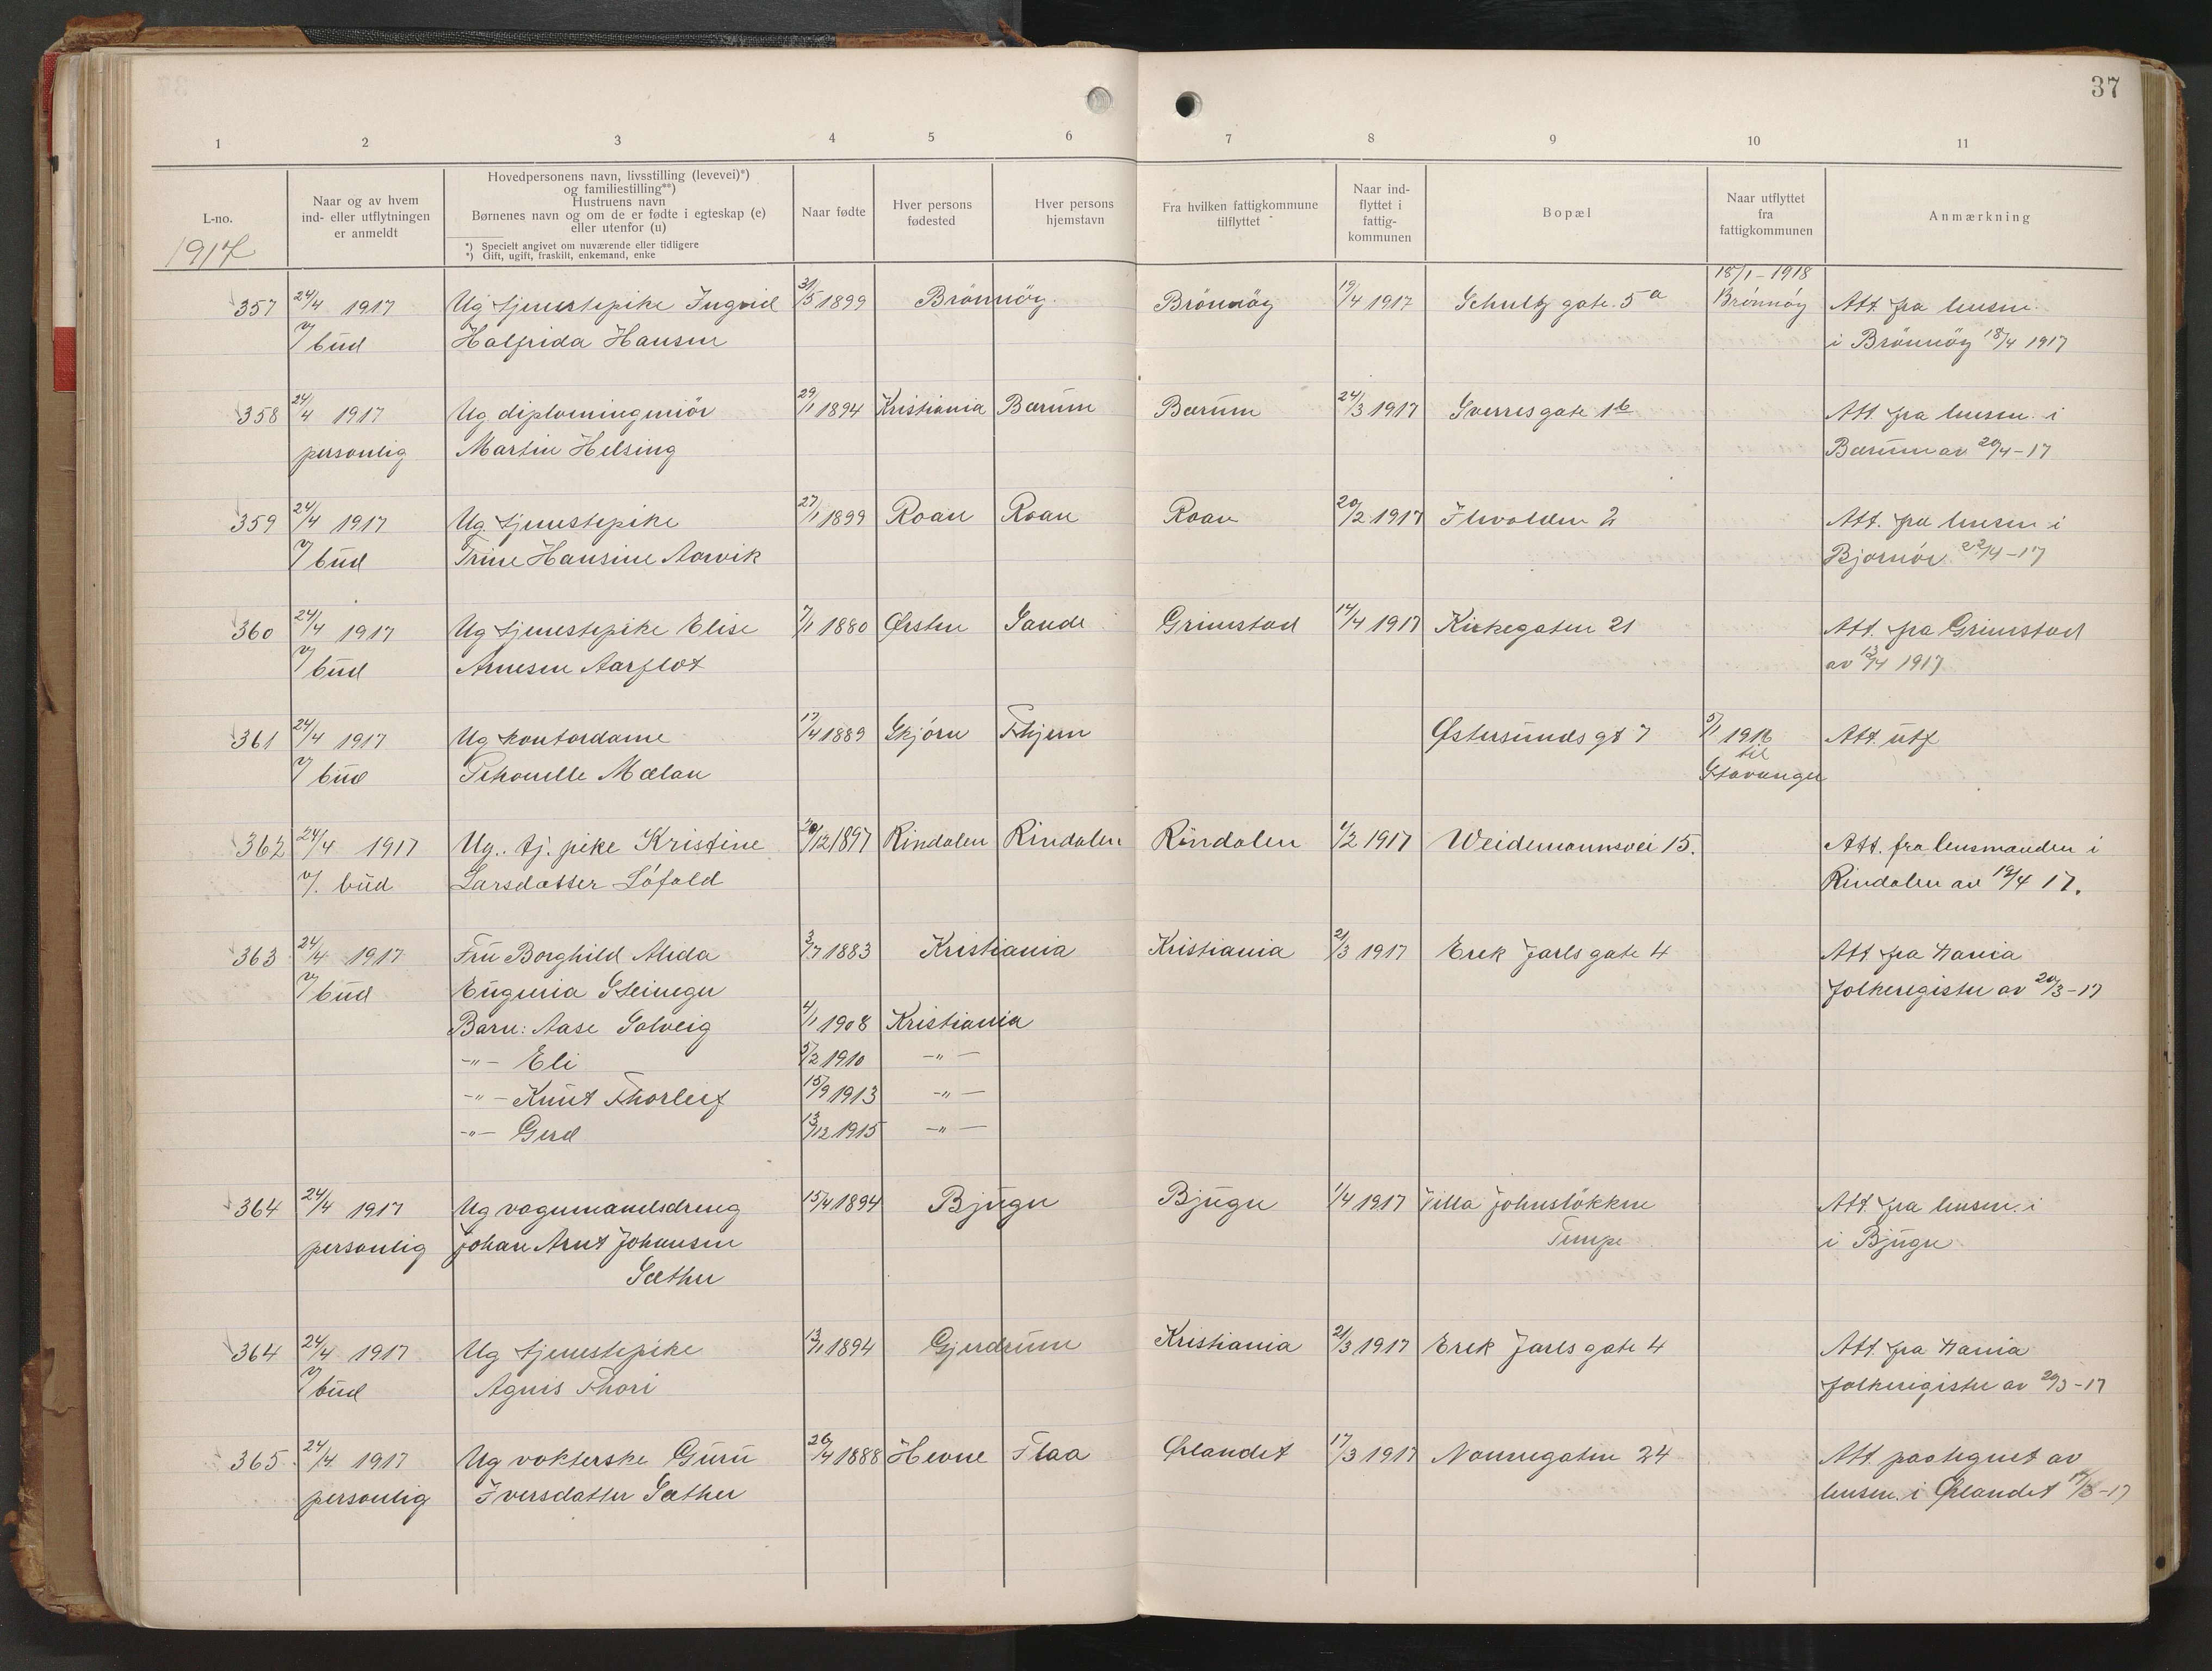 37
1 2 3 4 5 6 7 8 9 10 11
L-no.
1917
Naar og av hvem
ind- eller utflytningen
er anmeldt
Hovedpersonens navn, livsstilling (levevei)*)
og familiestilling**)
Hustruens navn
Børnenes navn og om de er fødte i egteskap (e)
eller utenfor (u)
*) Specielt angivet om nuværende eller tidligere
*) Gift, ugift, fraskilt, enkemand, enke
Naar fødte
Hver persons
fødested
Hver persons
hjemstavn
Fra hvilken fattigkommune
tilflyttet
Naar ind-
flyttet i
fattig-
kommunen
Bopæl
Naar utflyttet
fra
fattigkommunen
Anmærkning
18/1-1918
357 24/4 1917 Ug tjenestepike Ingrid 31/5 1899 Brönnöy. Brönnöy 19/4 1917 Schultz gate. 5a Brönnöy Att. fra lensm.
v/ bud Halfrida Hansen i Brönnöy 18/4 1917
358 24/4 1917 Ug diplomingeniör 29/1 1894 Kristiania Bærum Bærum 24/3 1917 Sverresgate 1b Att. fra lensm. i
personlig Martin Helsing Bærum av 20/4-17
359 24/4 1917 Ug tjenestepike 27/1 1899 Roan Roan Roan 20/2 1917 Ilevolden 2 Att. fra lensm i
v/ bud Trine Hansine Aarvik Bjørnör 22/4-17
360 24/4 1917 Ug tjenestepike Elise 7/1 1880 Ørsten Sande Grimstad 14/4 1917 Kirkegaten 21 Att. fra Grimstad
v/ bud Arnesen Aarflot av 13/4 1917
361 24/4 1917 Ug kontordame 17/4 1889 Skjörn Østersunds gt 7 5/1 1916 Att. utf
til
v/ bud Mælan Stavanger
362 24/4 1917 Ug. tj. pike Kristine 20/12 1897 Rindalen Rindalen Rindalen 1/2 1917 Weidemannsvei 15. Att. fra lensmanden i
v/. bud Larsdatter Löfald Rindalen av 19/4 17.
363 24/4 1917 Fru Borghild Alida 3/7 1883 Kristiania Kristiania 21/3 1917 Erik Jarls gate 4 Att. fra Xania
v/ bud Eugenia Steineger folkeregister av 20/3-17
Barn: Aase Solveig 4/1 1908 Kristiania
-"- Eli 5/2 1910 -"-
-"- Knut Thorleif 15/9 1913 -"-
-"- Gerd 13/12 1915 -"-
364 24/4 1917 Ug vognmandsdreng 15/4 1894 Bjugn Bjugn 1/4 1917 Villa Johnslökken Att. fra lensm. i
personlig Johan Arnt Johansen Tempe i Bjugn
Sæther
364 24/4 1917 Ug tjenestepike 13/1 1894 Gjerdrum Kristiania 21/3 1917 Erik Jarls gate 4 Att. fra Xania
v/ bud Agnes Thori folkeregister av 20/3-17
365 24/4 1917 Ug vokterske Guru 26/4 1888 Hevne Flaa Ørlandet 17/3 1917 Nonnegaten 24 Att. paategnet av
personlig Iversdatter Sæther lensm. i Ørlandet 17/3-17